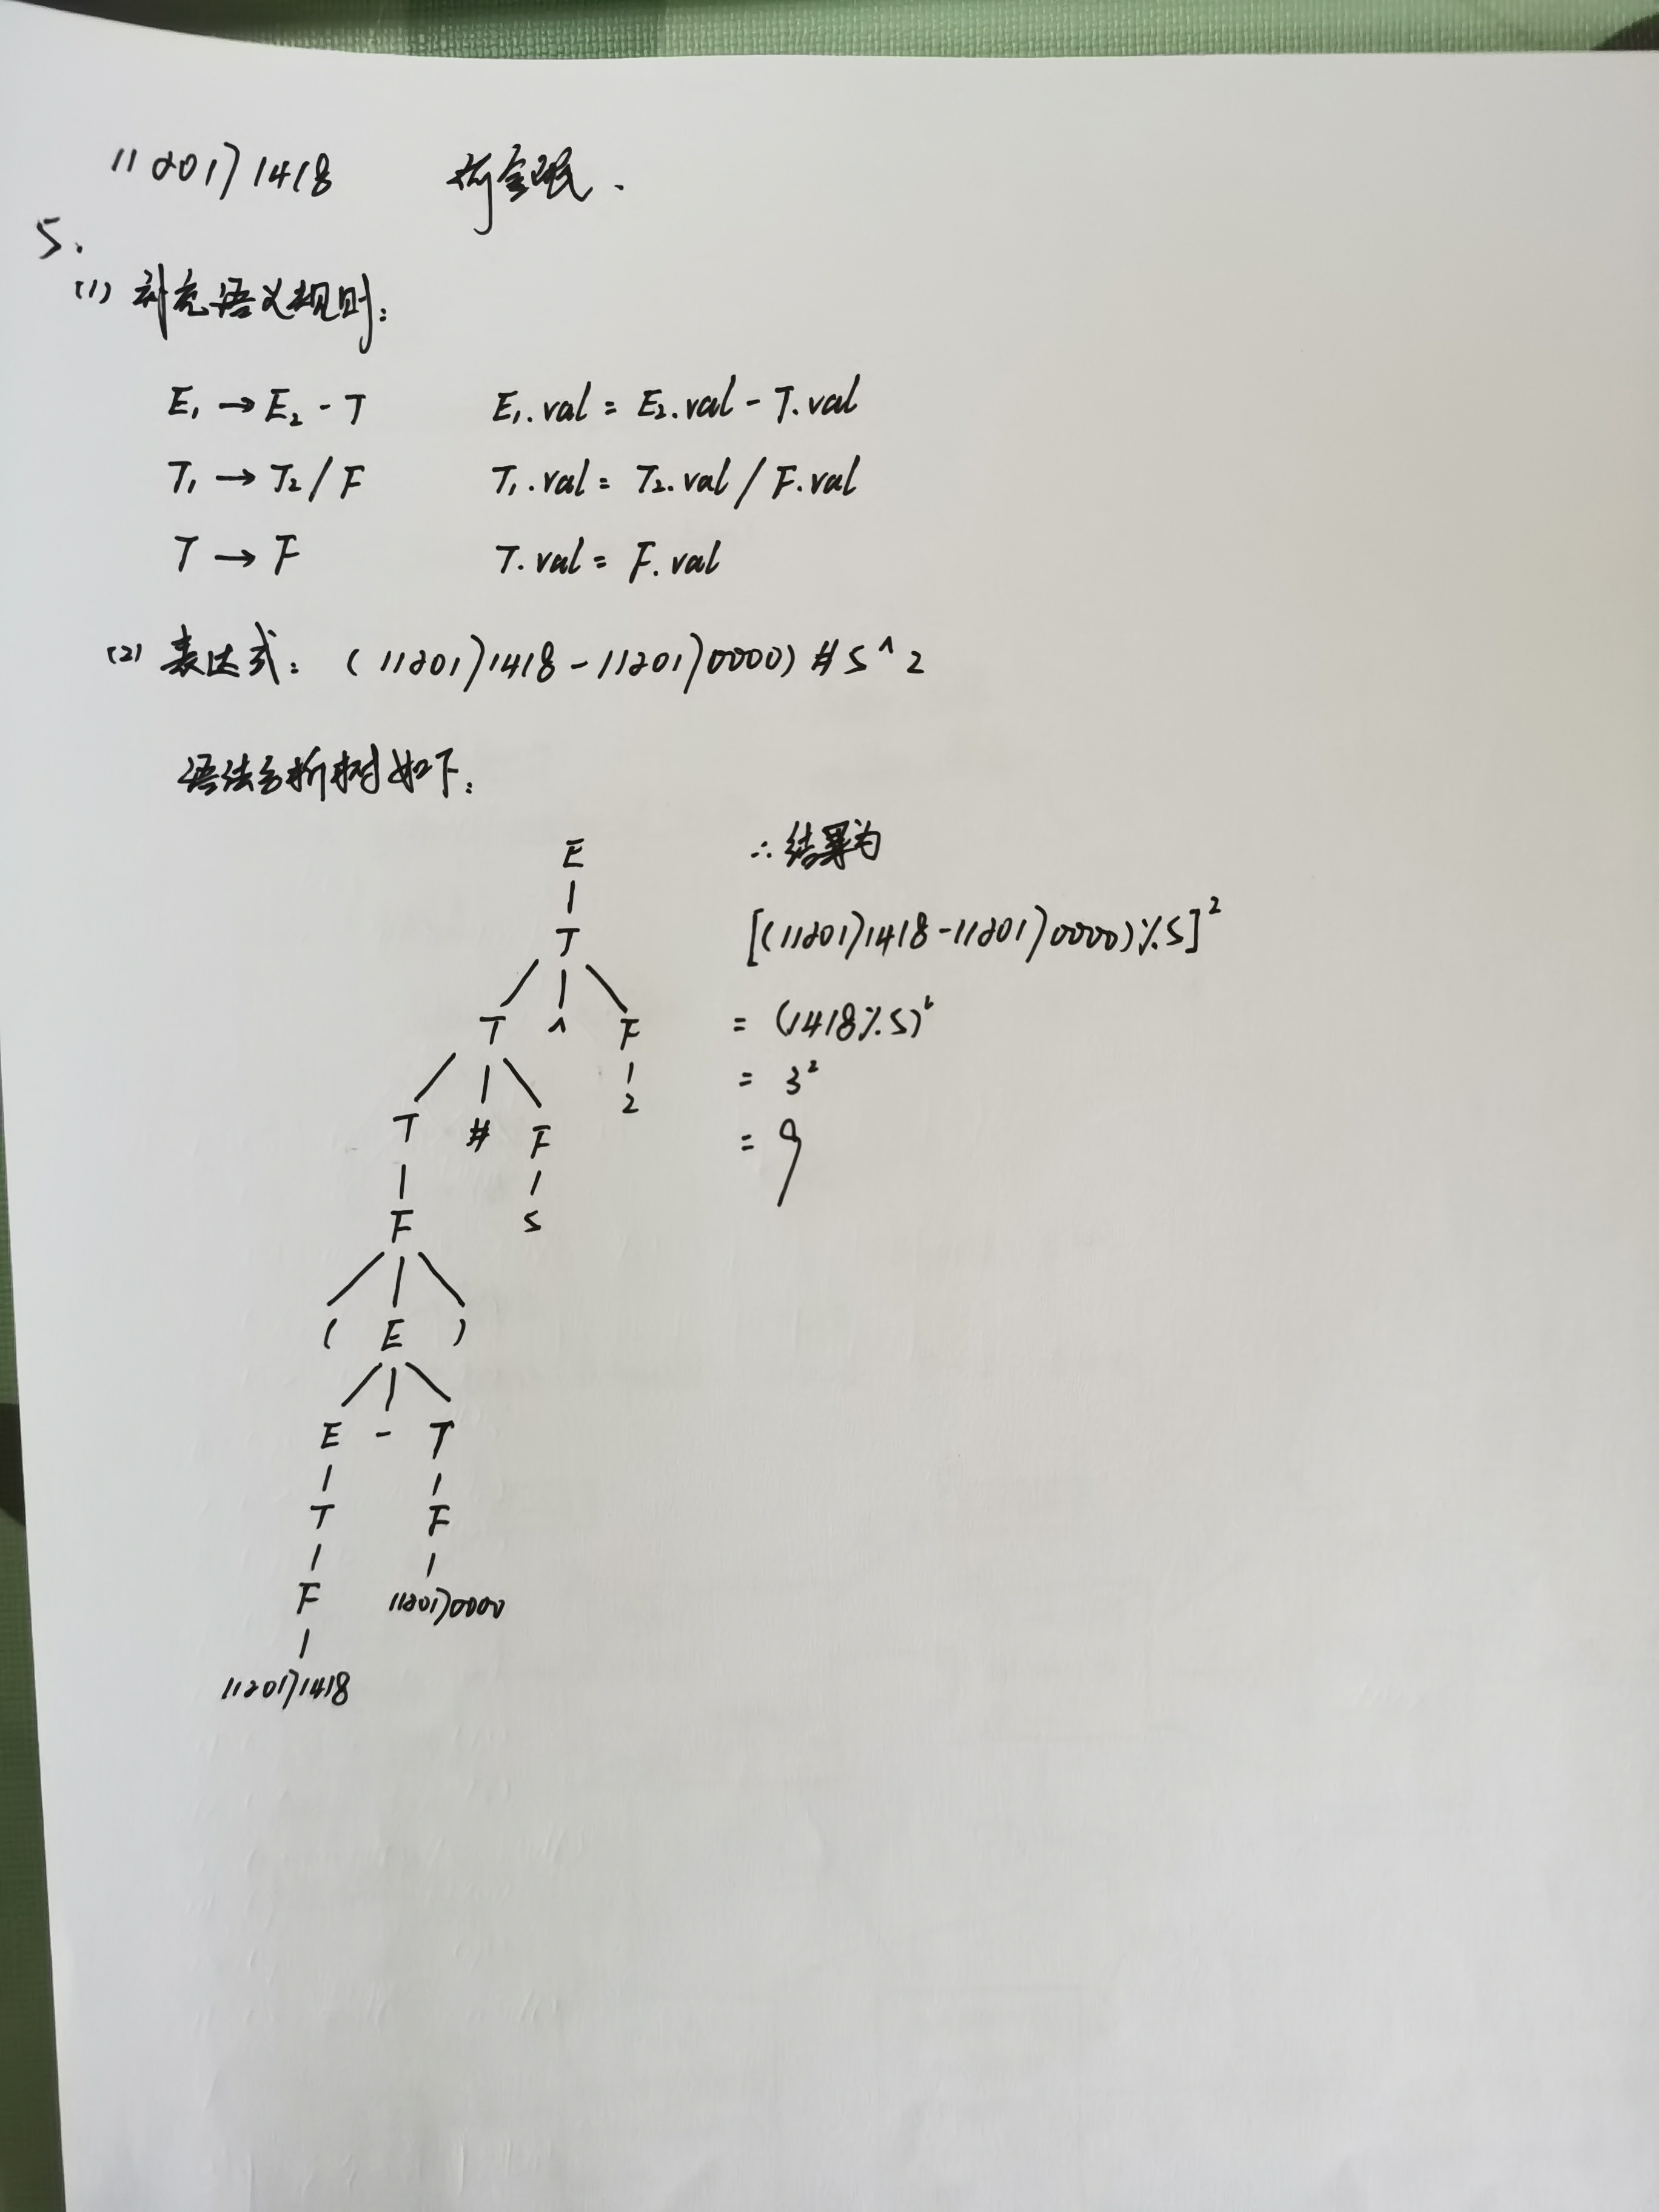 1120171418
5.
(1) 补充语义规则:
E₁ → E₂ - T    E₁.val = E₂.val - T.val
T₁ → T₂ / F    T₁.val = T₂.val / F.val
T → F    T.val = F.val
(2) 表达式: (1120171418-1120170000)#5^2
语法分析树如下:
E
T
T ^ F
2
T # F
5
F
( E )
E - T
T F
F 1120170000
1120171418
∴结果为
[(1120171418-1120170000)%5]²
= (1418%5)²
= 3²
= 9